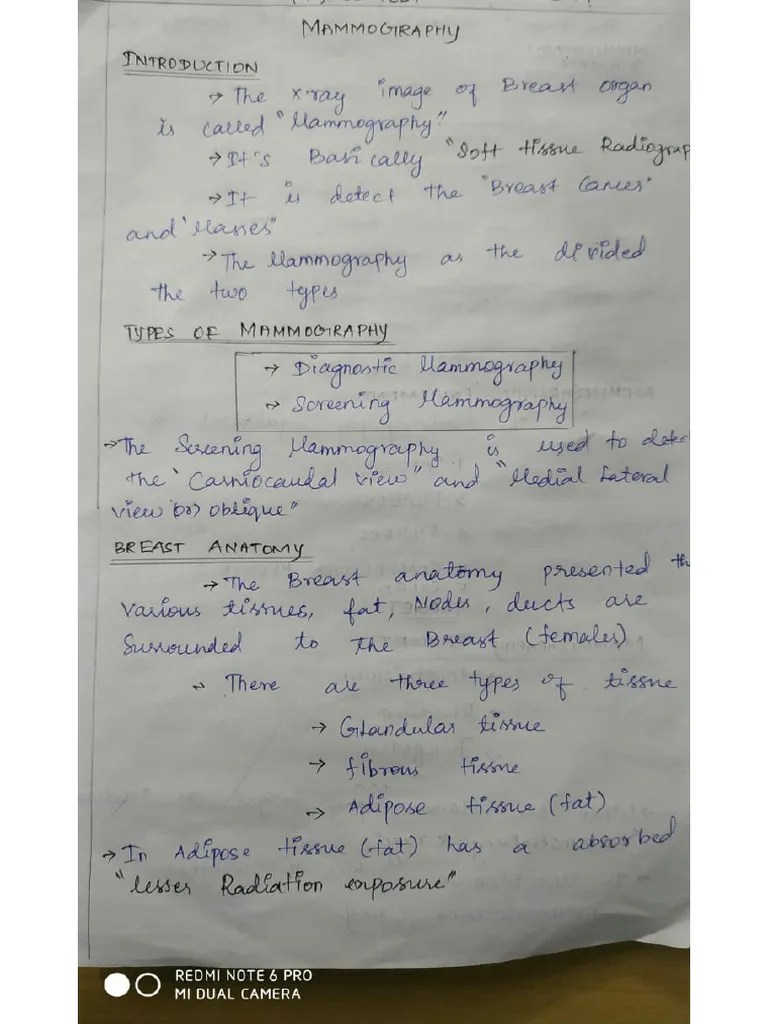 MAMMOGRAPHY
INTRODUCTION
→ The x-ray image of Breast organ
is called "Mammography."
→ It's Basically "Soft tissue Radiograp
→ It is detect the "Breast Cancer"
and "Masses"
→ The Mammography as the divided
the two types
TYPES OF MAMMOGRAPHY
→ Diagnostic Mammography
→ Screening Mammography
→ The Screening Mammography is used to detec
the "Casniocaudal view" and "Medial Lateral
view (or) oblique"
BREAST ANATOMY
→ The Breast anatomy presented th
various tissues, fat, Nodes, ducts are
Surrounded to the Breast (females)
→ There are three types of tissue
→ Glandular tissue
→ fibrous tissue
→ Adipose tissue (fat)
→ In Adipose tissue (fat) has a absorbed
"lesser Radiation exposure"
REDMI NOTE 6 PRO
MI DUAL CAMERA